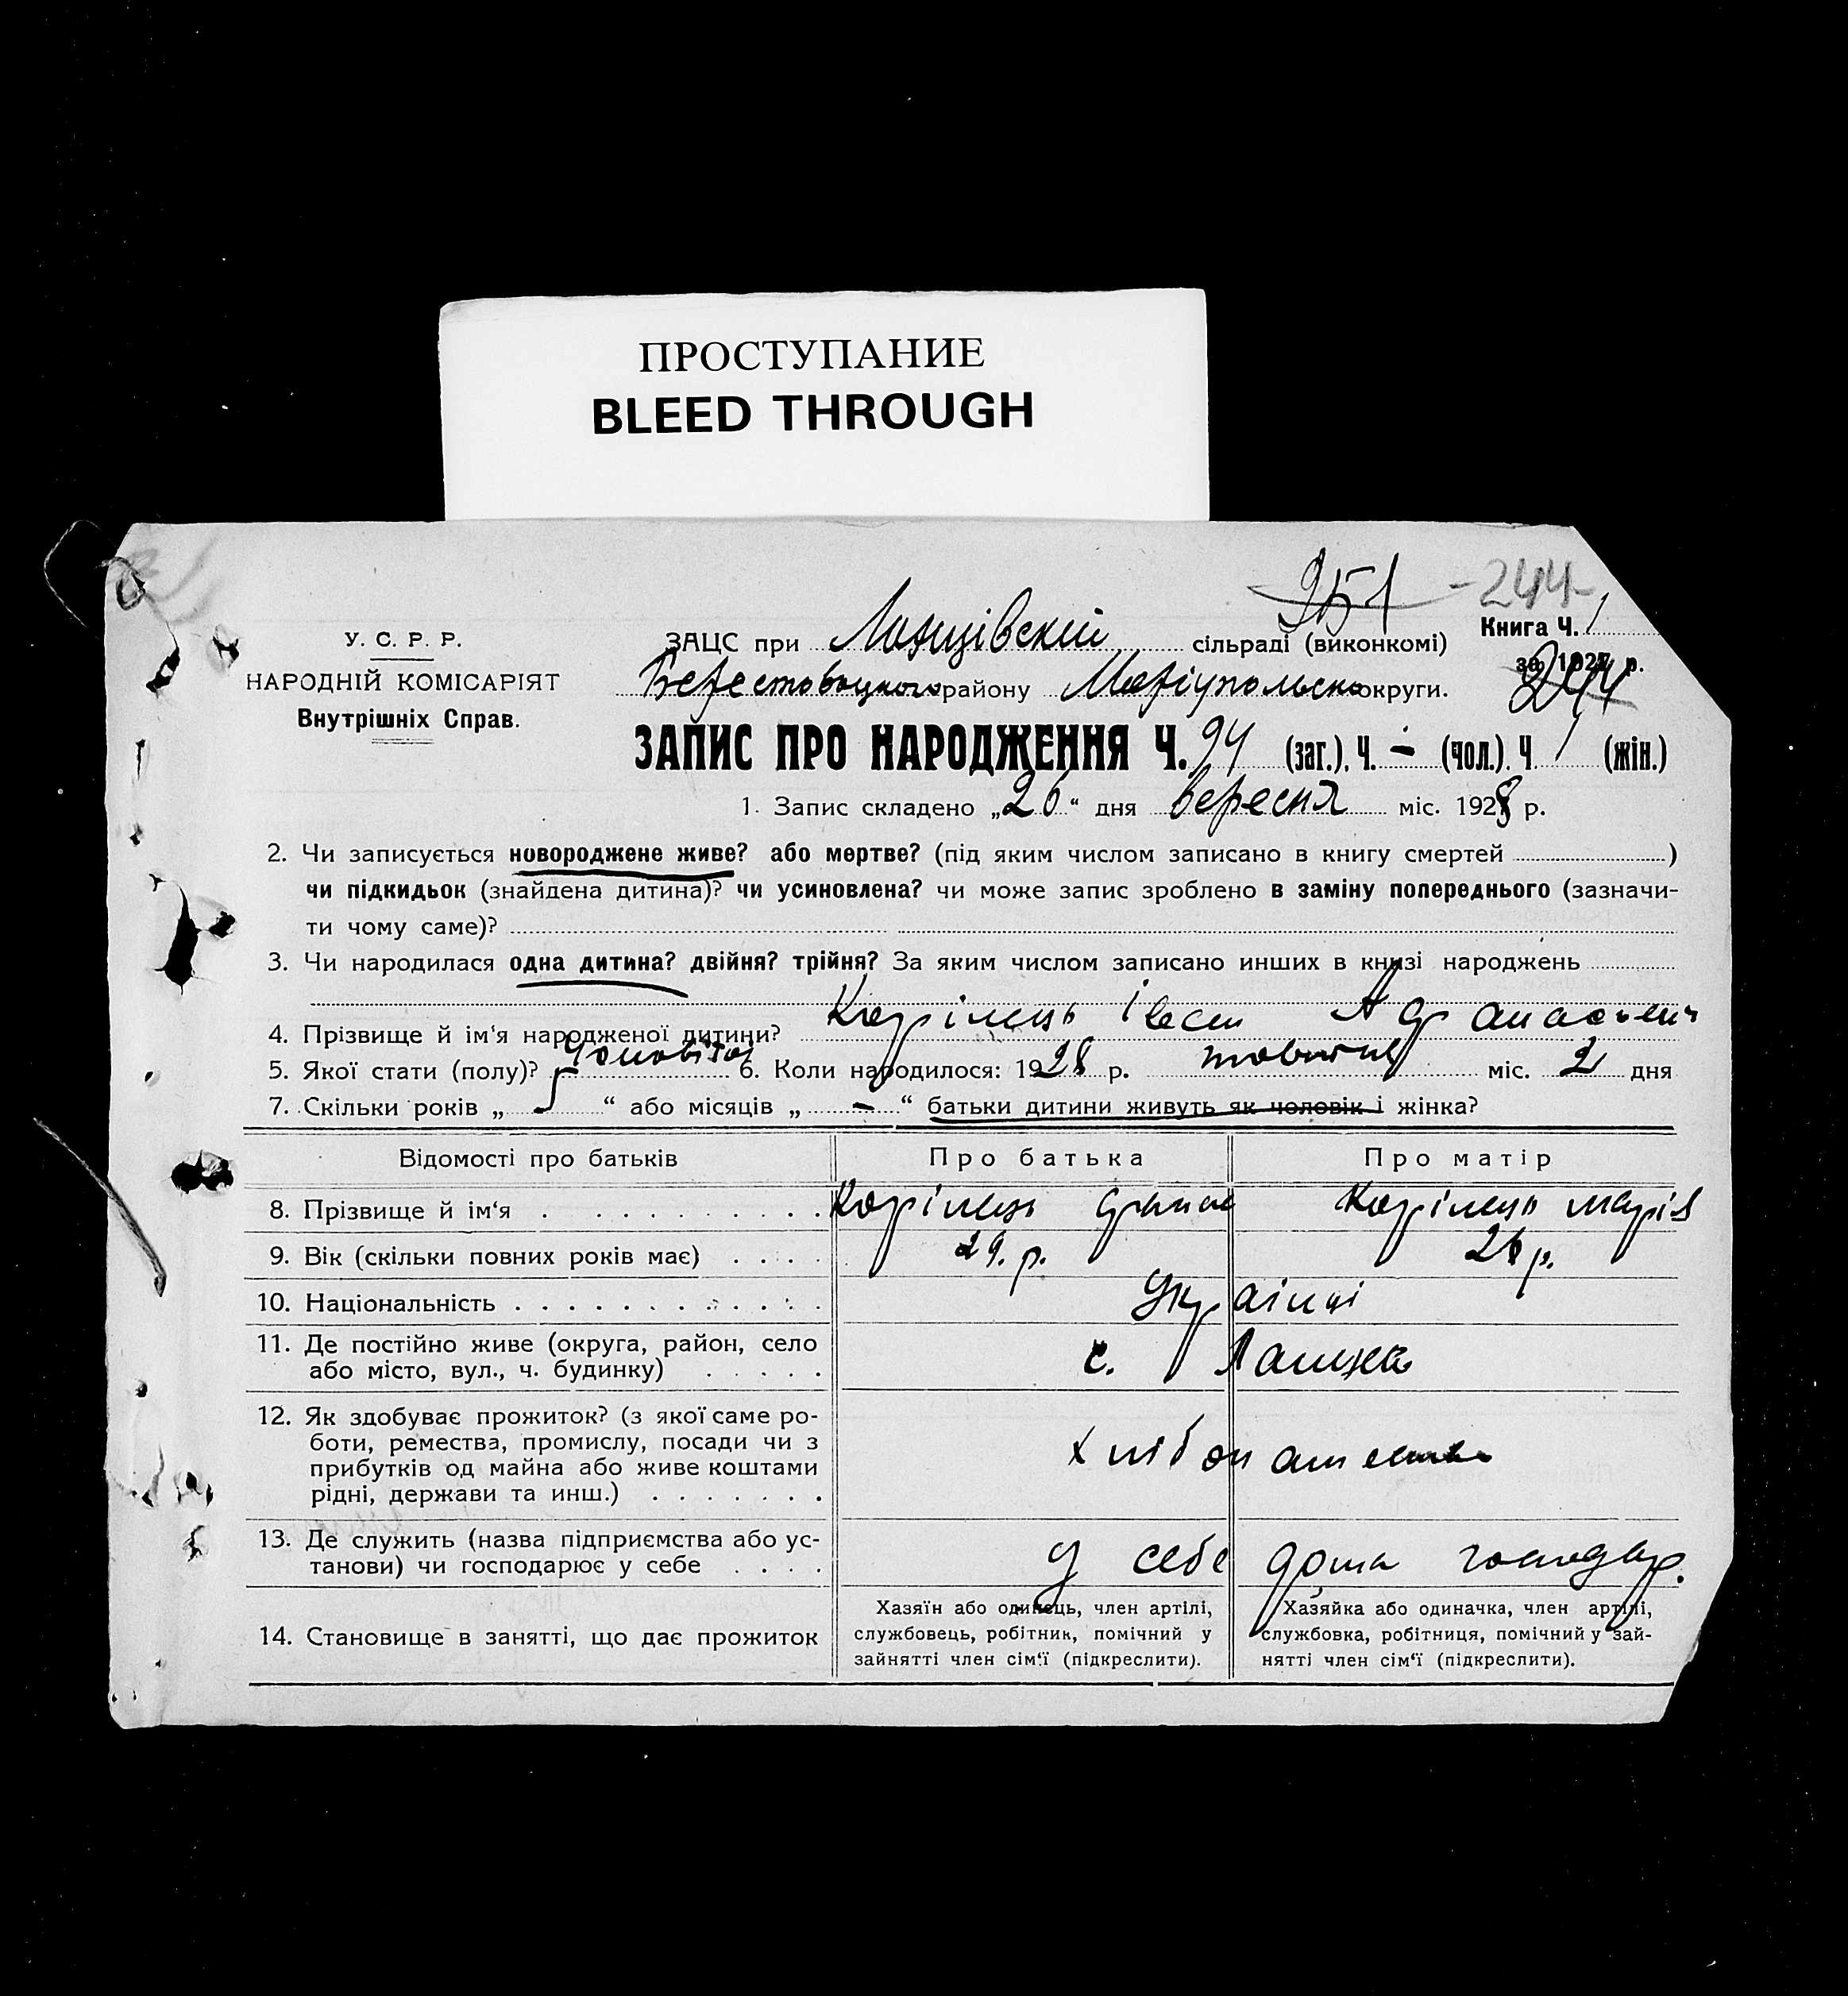 ПРОСТУПАНИЕ
BLEED THROUGH
251 -244-
У. С. Р. Р.
НАРОДНІЙ КОМІСАРІЯТ
Внутрішніх Справ.
ЗАЦС при сільраді (виконкомі) Книга Ч. 1
за 1927 р.
244
Берестовецького району Маріупольсько округи.
ЗАПИС ПРО НАРОДЖЕННЯ Ч. 94 (заг.). Ч. - (чол.). Ч 1 (жін.)
1. Запис складено „26“ дня вересня міс. 1928 р.
2. Чи записується новороджене живе? або мертве? (під яким числом записано в книгу смертей )
чи підкидьок (знайдена дитина)? чи усиновлена? чи може запис зроблено в заміну попереднього (зазначи-
ти чому саме)?
3. Чи народилася одна дитина? двійня? трійня? За яким числом записано инших в книзі народжень
4. Прізвище й ім‘я народженої дитини? Корінець Іван
5. Якої стати (полу)? Чоловічої 6. Коли народилося: 1928 р. міс. 2 дня
7. Скільки років „5“ або місяців „-“ батьки дитини живуть як чоловік і жінка?
Відомості про батьків Про батька Про матір
8. Прізвище й ім‘я Корінець Корінець Марія
9. Вік (скільки повних років має) 29. р. 26 р.
10. Національність Українці
11. Де постійно живе (округа, район, село
або місто, вул., ч. будинку) с.
12. Як здобуває прожиток? (з якої саме ро-
боти, ремества, промислу, посади чи з
прибутків од майна або живе коштами
рідні, держави та инш.)
13. Де служить (назва підприємства або ус-
танови) чи господарює у себе у себе дома господар.
14. Становище в занятті, що дає прожиток
Хазяїн або одинець, член артілі,
службовець, робітник, помічний у
зайнятті член сім‘ї (підкреслити).
Хазяйка або одиначка, член артілі,
службовка, робітниця, помічний у зай-
нятті член сім‘ї (підкреслити).